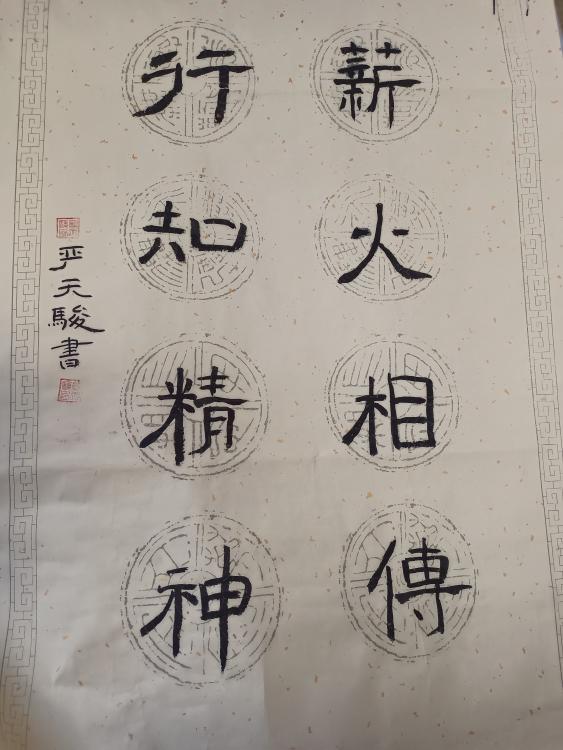 薪火相傳
行知精神
严天駿書